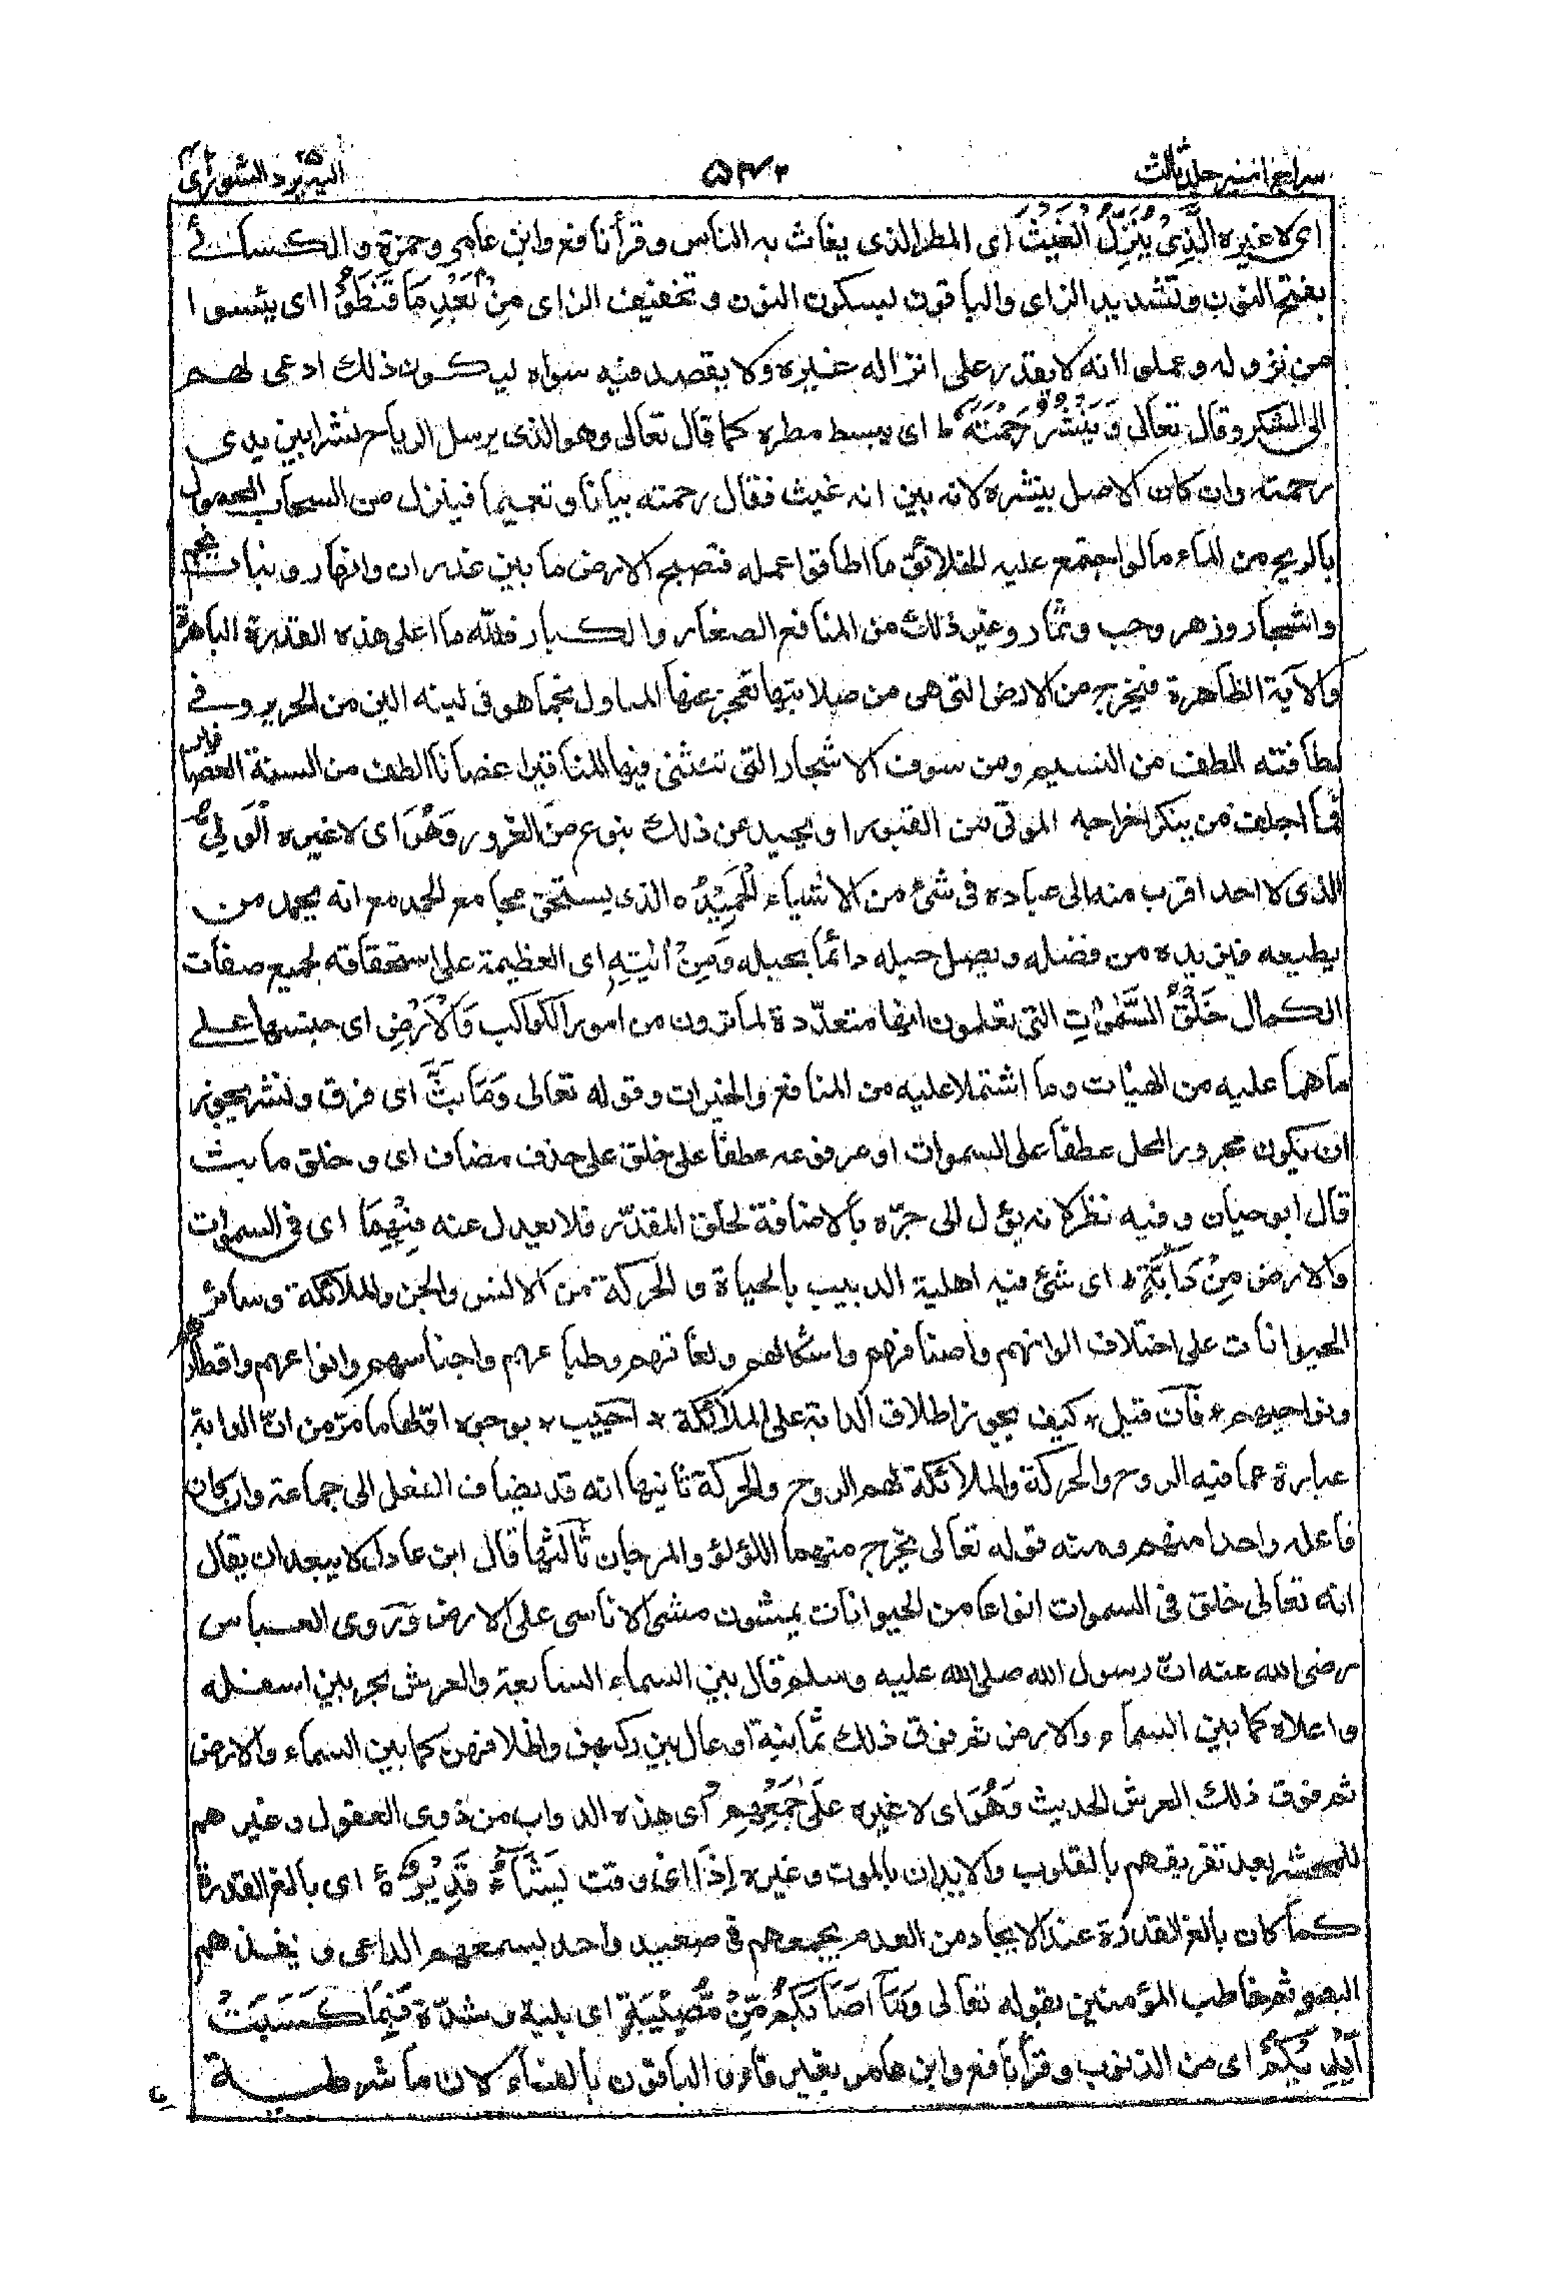 سراج المنير جلد ثالث
٥٤٢
اليه يرد ٢٥ الشورى ٤٢
اى لا غيره الَّذِىْ يُنَزِّلُ الْغَيْثَ اى المطر الذى يغاث به الناس وقرأ نافع وابن عامر وحمزة والكسائى
بفتح النون وتشديد الزاى والباقون بسكون النون وتخفيف الزاى مِنْ بَعْدِ مَا قَنَطُوْا اى يئسوا
من نزوله وعملوا انه لا يقدر على انزاله غيره ولا يقصد فيه سواه ليكون ذلك ادعى لهم
الى الشكر وقال تعالى وَيَنْشُرُ رَحْمَتَهٗ ط اى يبسط مطره كما قال تعالى وهو الذى يرسل الرياح نشرا بين يدى
رحمته وان كان الاصل ينشره لانه بين انه غيث فقال رحمته بيانا وتعميما فينزل من السحاب المحمول
بالريح من الماء ما لو اجتمع عليه الخلائق ما اطاقوا عمله فتصبح الارض ما بين غدران وانهار ونبات نجم
واشجار وزهر وحب وثمار وغير ذلك من المنافع الصغار والكبار فلله ما اعلى هذه القدرة الباهرة
والآية الظاهرة فيخرج من الارض التى هى من صلابتها تعجز عنها المعاول نجما هو فى لينه الين من الحرير وفى
لطافته الطف من النسيم ومن سوق الاشجار التى تنثنى فيها المناقير اغصانا الطف من السنة العصافير
فما اجلف من ينكر اخراجه الموتى من القبور او يحيد عن ذلك بنوع من الغرور وَهُوَ اى لا غيره الْوَلِىُّ
الذى لا احد اقرب منه الى عباده فى شئ من الاشياء الْحَمِيْدُ ه الذى يستحق مجامع الحمد مع انه يحمد من
يطيعه فيزيده من فضله ويصل حبله دائما بحبله وَمِنْ اٰيٰتِهٖ اى العظيمة على استحقاقه لجميع صفات
الكمال خَلْقُ السَّمٰوٰتِ التى تعلمون انها متعددة لما ترون من امور الكواكب وَالْاَرْضِ اى جنسها على
ما هما عليه من الهيات وما اشتملا عليه من المنافع والخيرات وقوله تعالى وَمَا بَثَّ اى فرق ونشر يجوز
ان يكون مجرور المحل عطفا على السموات او مرفوعه عطفا على خلق على حذف مضاف اى وخلق ما بث
قال ابو حيان وفيه نظر لانه يؤل الى جرّه بالاضافة لخلق المقدّر فلا يعدل عنه فِيْهِمَا اى فى السموات
والارض مِنْ دَابَّةٍ ط اى شئ فيه اهلية الدبيب بالحياة والحركة من الانس والجن والملائكة وسائر
الحيوانات على اختلاف الوانهم واصنافهم واشكالهم ولغاتهم وطباعهم واجناسهم وانواعهم واقطارهم
ونواحيهم * فآن قيل * كيف يجوز اطلاق الدابة على الملائكة * اجيب * بوجوه اولها ما مرّ من انّ الدابة
عبارة عما فيه الروح والحركة والملائكة لهم الروح والحركة ثانيها انه قد يضاف الفعل الى جماعة وان كان
فاعله واحدا منهم ومنه قوله تعالى يخرج منهما اللؤلؤ والمرجان ثالثها قال ابن عادل لا يبعد ان يقال
انه تعالى خلق فى السموات انواعا من الحيوانات يمشون مشى الاناسى على الارض وروى العباس
رضى الله عنه انّ رسول الله صلى الله عليه وسلم قال بين السماء السابعة والعرش بحر بين اسفله
واعلاه كما بين السماء والارض ثم فوق ذلك ثمانية اوعال بين ركبهن واظلافهن كما بين السماء والارض
ثم فوق ذلك العرش الحديث وَهُوَ اى لا غيره عَلٰى جَمْعِهِمْ اى هذه الدواب من ذوى العقول وغيرهم
للمحشر بعد تفريقهم بالقلوب والابدان بالموت وغيره اِذَا اى وقت يَشَآءُ قَدِيْرٌ ه اى بالغ القدرة
كما كان بالغ القدرة عند الايجاد من العدم يجمعهم فى صعيد واحد يسمعهم الداعى وينفذهم
البصر ثم خاطب المؤمنين بقوله تعالى وَمَآ اَصَابَكُمْ مِّنْ مُّصِيْبَةٍ اى بلية وشدّة فَبِمَا كَسَبَتْ
اَيْدِيْكُمْ اى من الذنوب وقرأ نافع وابن عامر بغير فاء والباقون بالفاء لان ما شرطية